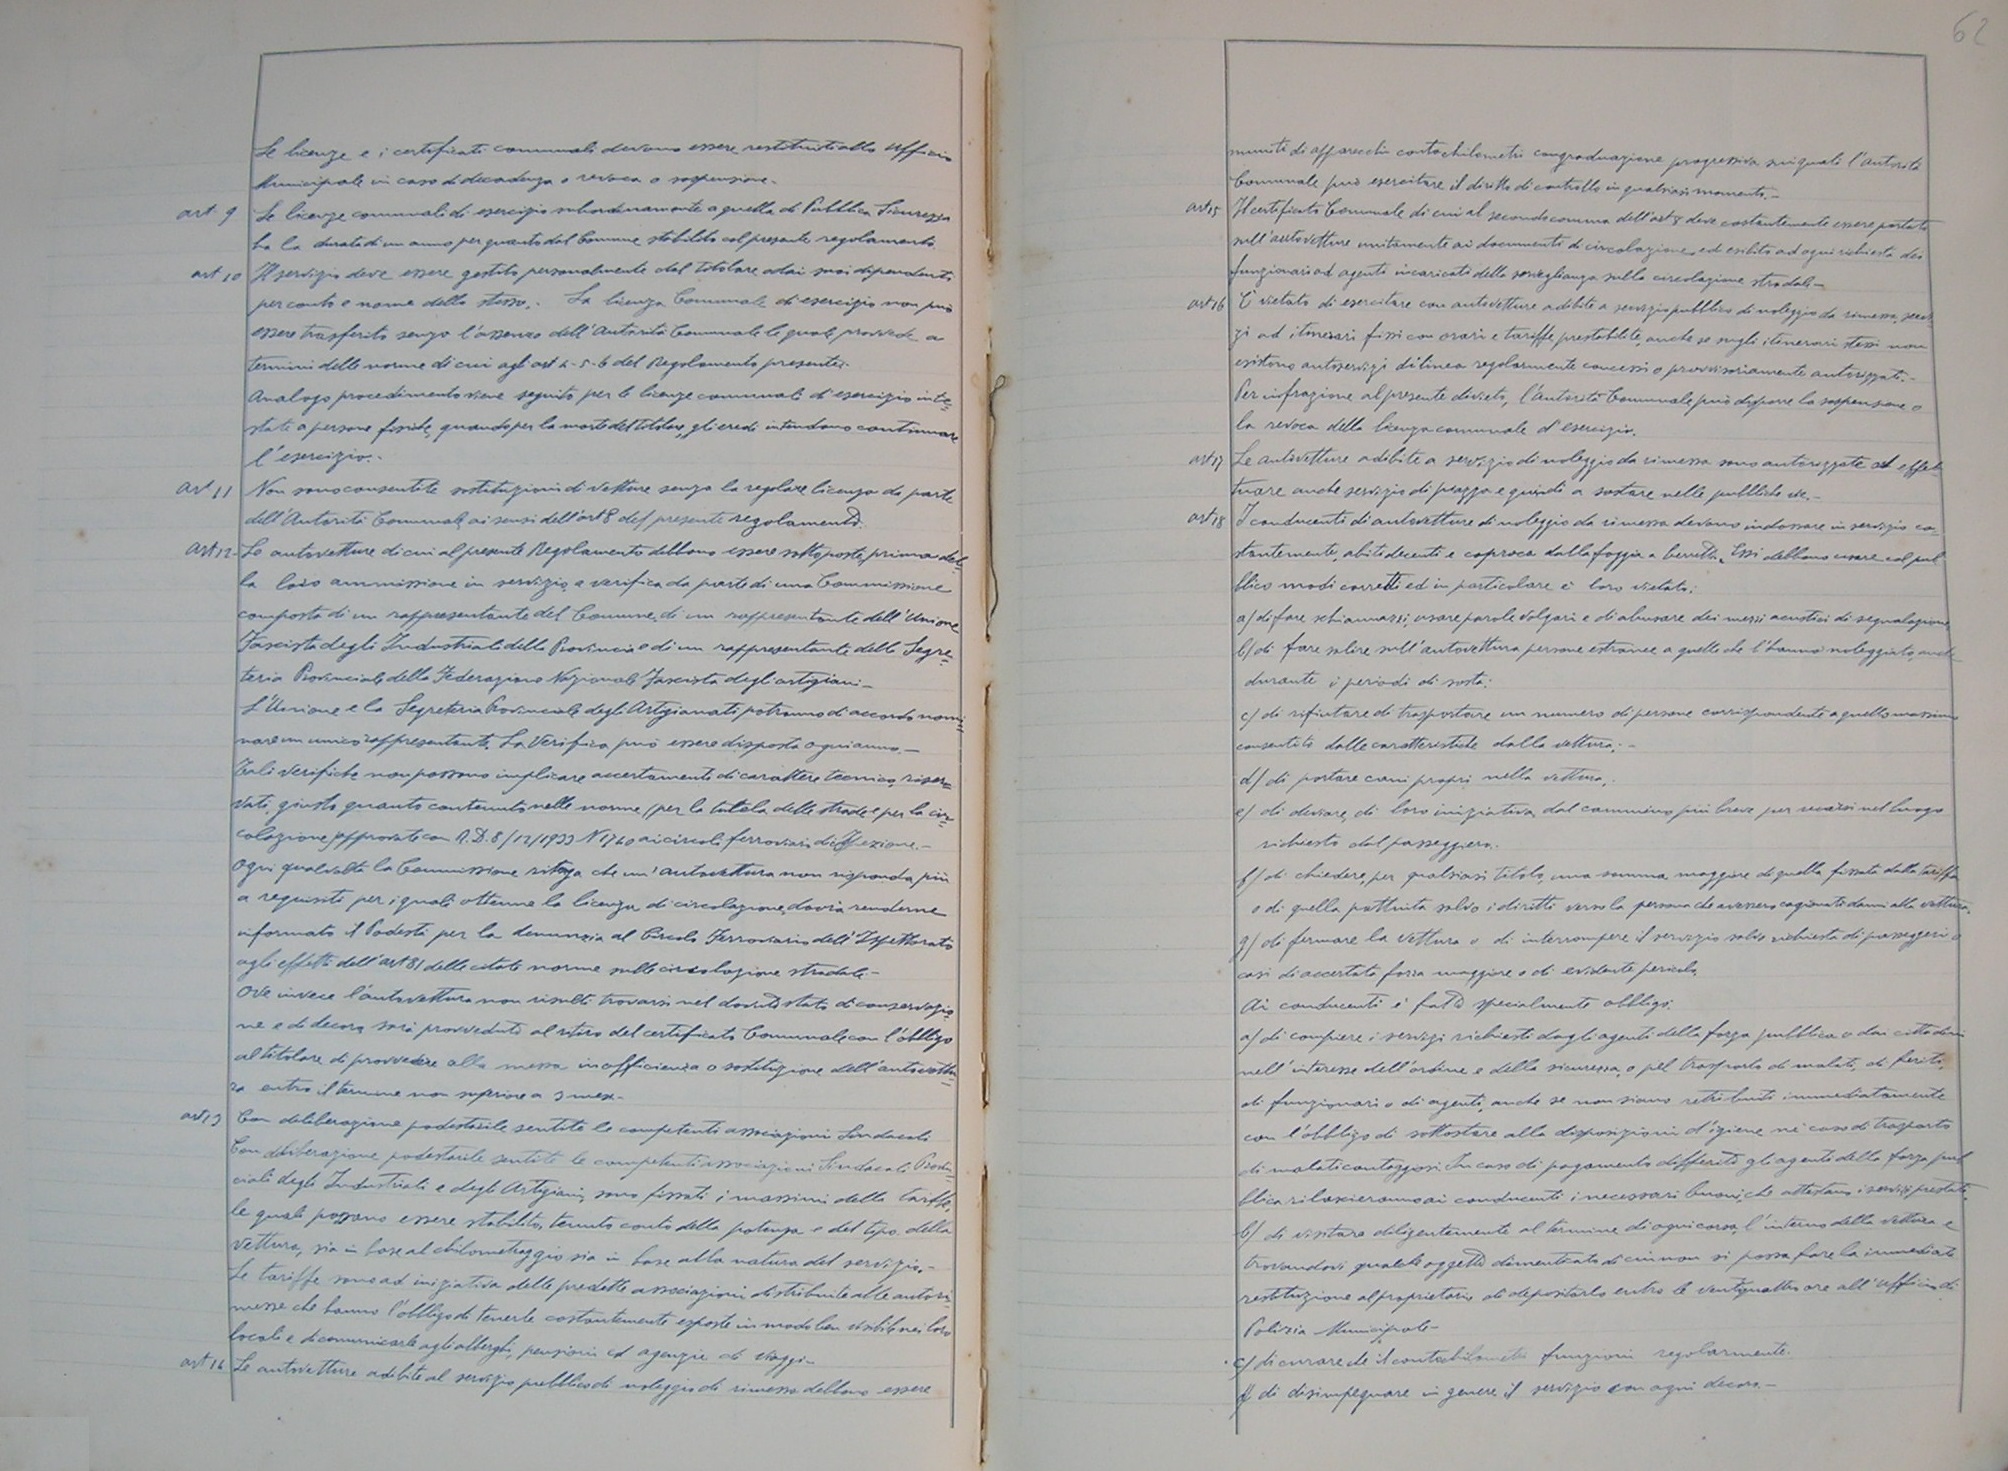 Le licenze e i certificati comunali devono essere restituiti allo ufficio
Municipale in caso di decadenza o revoca o sospensione.-
art 9 Le licenze comunali di esercizio subordinamente a quella di Pubblica Sicurezza
ha la durata di un anno per quanto dal Comune stabilito col presente regolamento.
art 10 Il servizio deve essere gestito personalmente dal titolare o dai suoi dipendenti
per conto e nome dello stesso.- La licenza Comunale di esercizio non può
essere trasferita senza l'assenso dell'Autorità Comunale la quale provvede a
termini delle norme di cui agli art 4-5-6 del Regolamento presente.-
Analogo procedimento viene seguito per le licenze comunali di esercizio inte-
state a persone fisiche, quando per la morte del titolare, gli eredi intendano continuare
l'esercizio.-
art 11 Non sono consentite sostituzioni di vetture senza la regolare licenza da parte
dell'Autorità Comunale ai sensi dell'art 8 del presente regolamento.
art 12- Le autovetture di cui al presente Regolamento debbono essere sottoposte, prima del-
la loro ammissione in servizio, a verifica da parte di una Commissione
composta di un rappresentante del Comune, di un rappresentante dell'Unione
Fascista degli Industriali della Provincia e di un rappresentante della Segre-
teria Provinciale della Federazione Nazionale Fascista degli artigiani.-
L'Unione e la Segreteria Provinciale degli Artigianati potranno di accordo nomi-
nare un unico rappresentante. La Verifica può essere disposta ogni anno.-
Tali verifiche non possono implicare accertamenti di carattere tecnico, riser-
vati, giusto quanto contenuto nelle norme (per la tutela delle strade e per la cir-
colazione) approvate con R.D. 8/12/1933 N 1740 ai circoli ferroviari di Ispezione.-
Ogni qualvolta la Commissione ritenga che un'autovettura non risponda più
a requisiti per i quali ottenne la licenza di circolazione, dovrà renderne
informato il Podestà per la denunzia al Circolo Ferroviario dell'Ispettorato
agli effetti dell'art 81 delle citate norme sulla circolazione stradale.-
Ove invece l'autovettura non risulti trovarsi nel dovuto stato di conservazio-
ne e di decoro, sarà provveduto al ritiro del certificato Comunale con l'obbligo
al titolare di provvedere alla messa in efficienza o sostituzione dell'autovettu-
ra entro il termine non superiore a 3 mesi.-
art 13 Con deliberazione podestarile sentite le competenti associazioni Sindacali
Con deliberazione podestarile sentite le competenti associazioni Sindacali Provin-
ciali degli Industriali e degli Artigiani, sono fissati i massimi delle tariffe,
le quali possono essere stabilite, tenuto conto della potenza e del tipo della
vettura, sia in base al chilometraggio sia in base alla natura del servizio.-
Le tariffe sono ad iniziativa delle predette associazioni distribuite alle autori-
messe che hanno l'obbligo di tenerle costantemente esposte in modo ben visibile nei loro
locali e di comunicarle agli alberghi, pensioni ed agenzie di viaggi.-
art 14 Le autovetture adibite al servizio pubblico di noleggio di rimessa debbono essere
62
muniti di apparecchi contachilometri con graduazione progressiva sui quali l'autorità
Comunale può esercitare il diritto di controllo in qualsiasi momento.-
art 15 Il certificato Comunale di cui al secondo comma dell'art 8 deve costantemente essere portato
sull'autovetture unitamente ai documenti di circolazione ed esibito ad ogni richiesta dei
funzionari ad agenti incaricati della sorveglianza sulla circolazione stradale.-
art 16 E' vietato di esercitare con autovetture adibite a servizio pubblico di noleggio da rimessa, servi-
zi ad itinerari fissi con orari e tariffe prestabilite, anche se sugli itinerari stessi non
esistono autoservizi di linea regolarmente concessi o provvisoriamente autorizzati.-
Per infrazione al presente divieto, l'Autorità Comunale può disporre la sospensione o
la revoca della licenza comunale d'esercizio.
art 17 Le autovetture adibite a servizio di noleggio da rimessa sono autorizzate ad effet-
tuare anche servizio di piazza e quindi a sostare nelle pubbliche vie.-
art 18 I conducenti di autovetture di noleggio da rimessa devono indossare in servizio co-
stantemente, abiti decenti e dalla foggia a berretto. Essi debbono usare col pub-
blico modi corretti ed in particolare è loro vietato:
a) di fare schiamazzi, usare parole volgari e di abusare dei mezzi acustici di segnalazione
b) di fare salire sull'autovettura persone estranee a quelle che l'hanno noleggiato, anche
durante i periodi di sosta;
c) di rifiutare di trasportare un numero di persone corrispondente a quello massimo
consentito dalle caratteristiche dalla vettura;-
d) di portare cani propri nella vettura;
e) di deviare, di loro iniziativa, dal cammino più breve per recarsi nel luogo
richiesto dal passeggero.
f) di chiedere, per qualsiasi titolo, una somma maggiore di quella fissata dalla tariffa
o di quella pattuita salvo i diritti verso la persona che avessero cagionati danni alla vettura.
g) di fermare la vettura o di interrompere il servizio salvo richiesta di passeggeri o
casi di accertata forza maggiore o di evidente pericolo.
Ai conducenti è fatto specialmente obbligo:
a) di compiere i servizi richiesti dagli agenti della forza pubblica o dai cittadini
nell'interesse dell'ordine e della sicurezza, o pel trasporto di malati, di feriti,
di funzionari o di agenti, anche se non siano retribuiti immediatamente
con l'obbligo di sottostare alla disposizioni d'igiene nel caso di trasporto
di malati contagiosi. In caso di pagamento differito gli agenti della forza pub-
blica rilascieranno ai conducenti i necessari buoni, che attestano i servizi prestati.
b) di visitare diligentemente al termine di ogni corsa, l'interno della vettura e
trovandovi qualche oggetto dimenticato di cui non si possa fare la immediata
restituzione al proprietario di depositarlo entro le ventiquattro ore all'ufficio di
Polizia Municipale-
c) di curare che il contachilometri funzioni regolarmente.
d) di disimpegnare in genere il servizio con ogni decoro.-